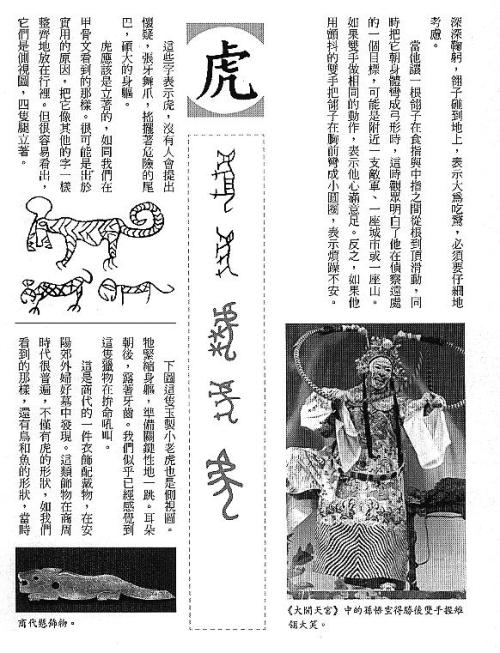 深深鞠躬，翎子碰到地上，表示大為吃驚，必須要仔細地
考慮。
當他讓一根翎子在食指與中指之間從根到頂滑動，同
時把它朝身體彎成弓形時，這時觀眾明白了他在偵察遠處
的一個目標，可能是附近一支敵軍、一座城市或一座山。
如果雙手做相同的動作，表示他心滿意足。反之，如果他
用顫抖的雙手把翎子在胸前彎成小圓圈，表示煩躁不安。
《大鬧天宮》中的孫悟空得勝後雙手握雉
翎大笑。
虎
這些字表示虎，沒有人會提出
懷疑，張牙舞爪，搖擺著危險的尾
巴，碩大的身軀。
虎應該是立著的，如同我們在
甲骨文看到的那樣。很可能是出於
實用的原因，把它像其他的字一樣
整齊地放在行裡。但很容易看出，
它們是側視圖，四隻腿立著。
下圖這隻玉製小老虎也是側視圖。
牠緊縮身軀，準備關鍵性地一跳。耳朵
朝後，露著牙齒。我們似乎已經感覺到
這隻獵物在拚命吼叫。
這是商代的一件衣飾配戴物，在安
陽郊外婦好墓中發現。這類飾物在商周
時代很普遍，不僅有虎的形狀，如我們
看到的那樣，還有鳥和魚的形狀，當時
商代懸飾物。